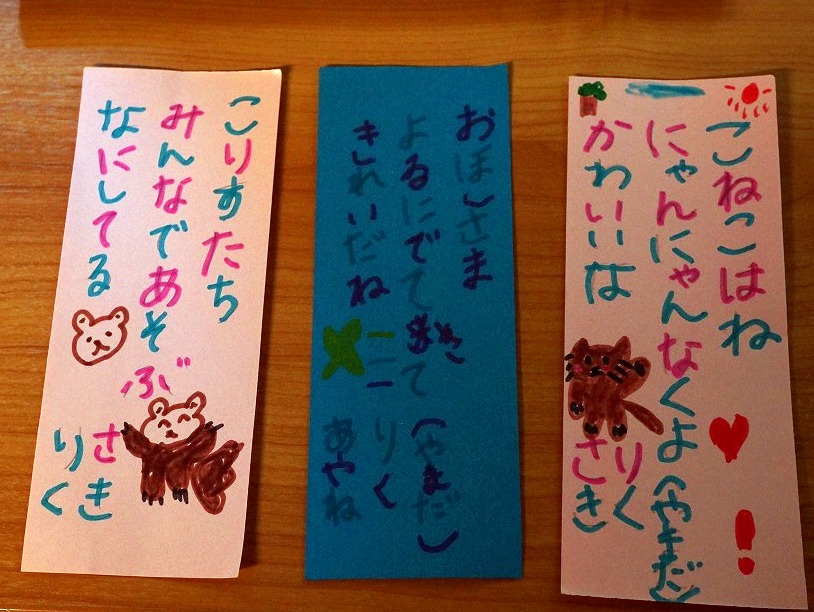 こねこはね !
にゃんにゃんなくよ(やまだ)
かわいいな
りく
さき
おほしさま
よるにでてきて
きれいだね
(やまだ)
りく
あやね
こりすたち
みんなであそぶ
なにしてる
さき
りく